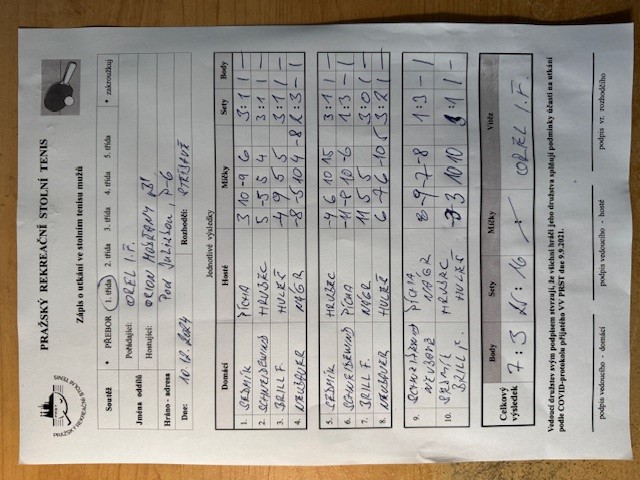 PRAŽSKÝ REKREAČNÍ STOLNÍ TENIS
Zápis o utkání ve stolním tenisu mužů
Soutěž * PŘEBOR 1. třída 2. třída 3. třída 4. třída 5. třída * zakroužkuj
Jména oddílů Pořádající: OREL I.F.
Hostující: ORION MODŘANY
Hráno - adresa Pod Juliskou, P-6
Dne: 10.12.2024 Rozhodčí: STŘÍDAVĚ
Jednotlivé výsledky
Domácí Hosté Míčky Sety Body
1. SEDMÍK PÍCHA 3 10 -9 6 3:1 1 —
2. SCHNEIDEWIND HRUBEC 5 -5 5 4 3:1 1 —
3. BRILL F. HULEŠ -4 9 5 5 3:1 1 —
4. NEUBAUER NÁGR -8 -5 10 4 -8 2:3 — 1
5. SEDMÍK HRUBEC -4 6 10 15 3:1 1 —
6. SCHNEIDEWIND PÍCHA -11 -8 10 -6 1:3 — 1
7. BRILL F. NÁGR 11 5 5 3:0 1 —
8. NEUBAUER HULEŠ 6 -7 6 -10 5 3:2 1
9. SCHNEIDEWIND PÍCHA 8 -9 -7 -8 1:3 — 1
NÁGR
10. SEDMÍK HRUBEC 3 10 10 3:1 1 —
BRILL F. HULEŠ
Celkový výsledek Body Sety Míčky Vítěz
7:3 25:16 OREL I.F.
Vedoucí družstev svým podpisem stvrzují, že všichni hráči jeho družstva splňují podmínky účasti na utkání
podle COVID-protokolu přijatého VV PRST dne 9.9.2021.
podpis vedoucího - domácí podpis vedoucího - hosté podpis vr. rozhodčího